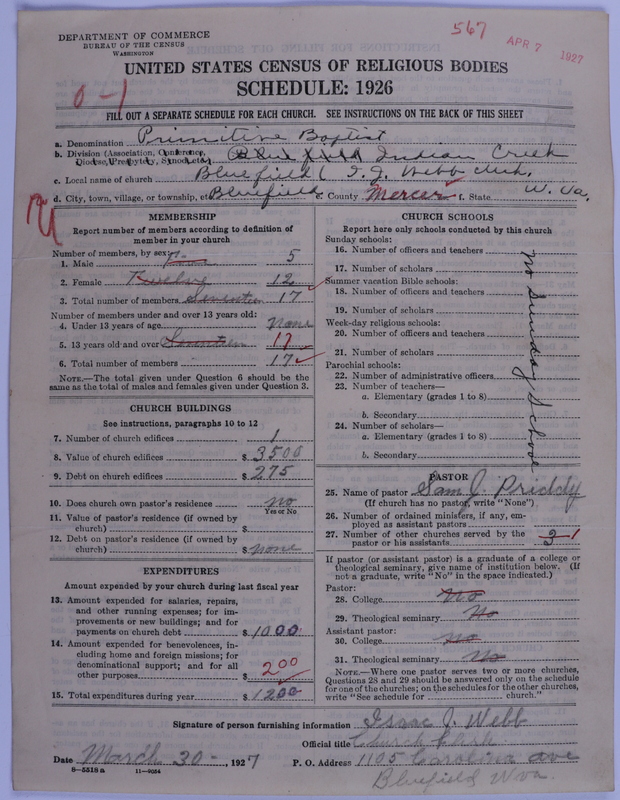 DEPARTMENT OF COMMERCE
BUREAU OF THE CENSUS
WASHINGTON
567
APR 7 1927
UNITED STATES CENSUS OF RELIGIOUS BODIES
SCHEDULE: 1926
0-1
FILL OUT A SEPARATE SCHEDULE FOR EACH CHURCH. SEE INSTRUCTIONS ON THE BACK OF THIS SHEET
a. Denomination Primitive Baptist
b. Division (Association, Conference, Diocese, Presbytery, Synod, etc.) Indian Creek
c. Local name of church Bluefield ( I. J. Webb Clerk.
d. City, town, village, or township, etc. Bluefield e. County Mercer f. State W. Va.
MEMBERSHIP
Report number of members according to definition of
member in your church
Number of members, by sex:
1. Male 5
2. Female Twelve 12
3. Total number of members Seventeen 17
Number of members under and over 13 years old:
4. Under 13 years of age none
5. 13 years old and over Seventeen 17
6. Total number of members 17
NOTE.—The total given under Question 6 should be the
same as the total of males and females given under Question 3.
CHURCH BUILDINGS
See instructions, paragraphs 10 to 12
7. Number of church edifices 1
8. Value of church edifices $ 3500
9. Debt on church edifices $ 275
10. Does church own pastor's residence no
Yes or No
11. Value of pastor's residence (if owned by
church) $
12. Debt on pastor's residence (if owned by
church) $ none
EXPENDITURES
Amount expended by your church during last fiscal year
13. Amount expended for salaries, repairs,
and other running expenses; for im-
provements or new buildings; and for
payments on church debt $ 1000
14. Amount expended for benevolences, in-
cluding home and foreign missions; for
denominational support; and for all
other purposes $ 200
15. Total expenditures during year $ 1200
CHURCH SCHOOLS
Report here only schools conducted by this church
Sunday schools:
16. Number of officers and teachers
17. Number of scholars
Summer vacation Bible schools:
18. Number of officers and teachers
19. Number of scholars
Week-day religious schools:
20. Number of officers and teachers
21. Number of scholars
Parochial schools:
22. Number of administrative officers
23. Number of teachers—
a. Elementary (grades 1 to 8)
b. Secondary
24. Number of scholars—
a. Elementary (grades 1 to 8)
b. Secondary
No Sunday School
PASTOR
25. Name of pastor Sam J. Priddy
(If church has no pastor, write "None")
26. Number of ordained ministers, if any, em-
ployed as assistant pastors
27. Number of other churches served by the
pastor or his assistants 3 1
If pastor (or assistant pastor) is a graduate of a college or
theological seminary, give name of institution below. (If
not a graduate, write "No" in the space indicated.)
Pastor:
28. College No
29. Theological seminary No
Assistant pastor:
30. College no
31. Theological seminary No
NOTE.—Where one pastor serves two or more churches,
Questions 28 and 29 should be answered only on the schedule
for one of the churches; on the schedules for the other churches,
write "See schedule for church."
Signature of person furnishing information Isaac J. Webb
Official title Church Clerk
Date March 30 - , 1927 P. O. Address 1105 Carolina ave
8—5518 a 11—9034 Bluefield W va.